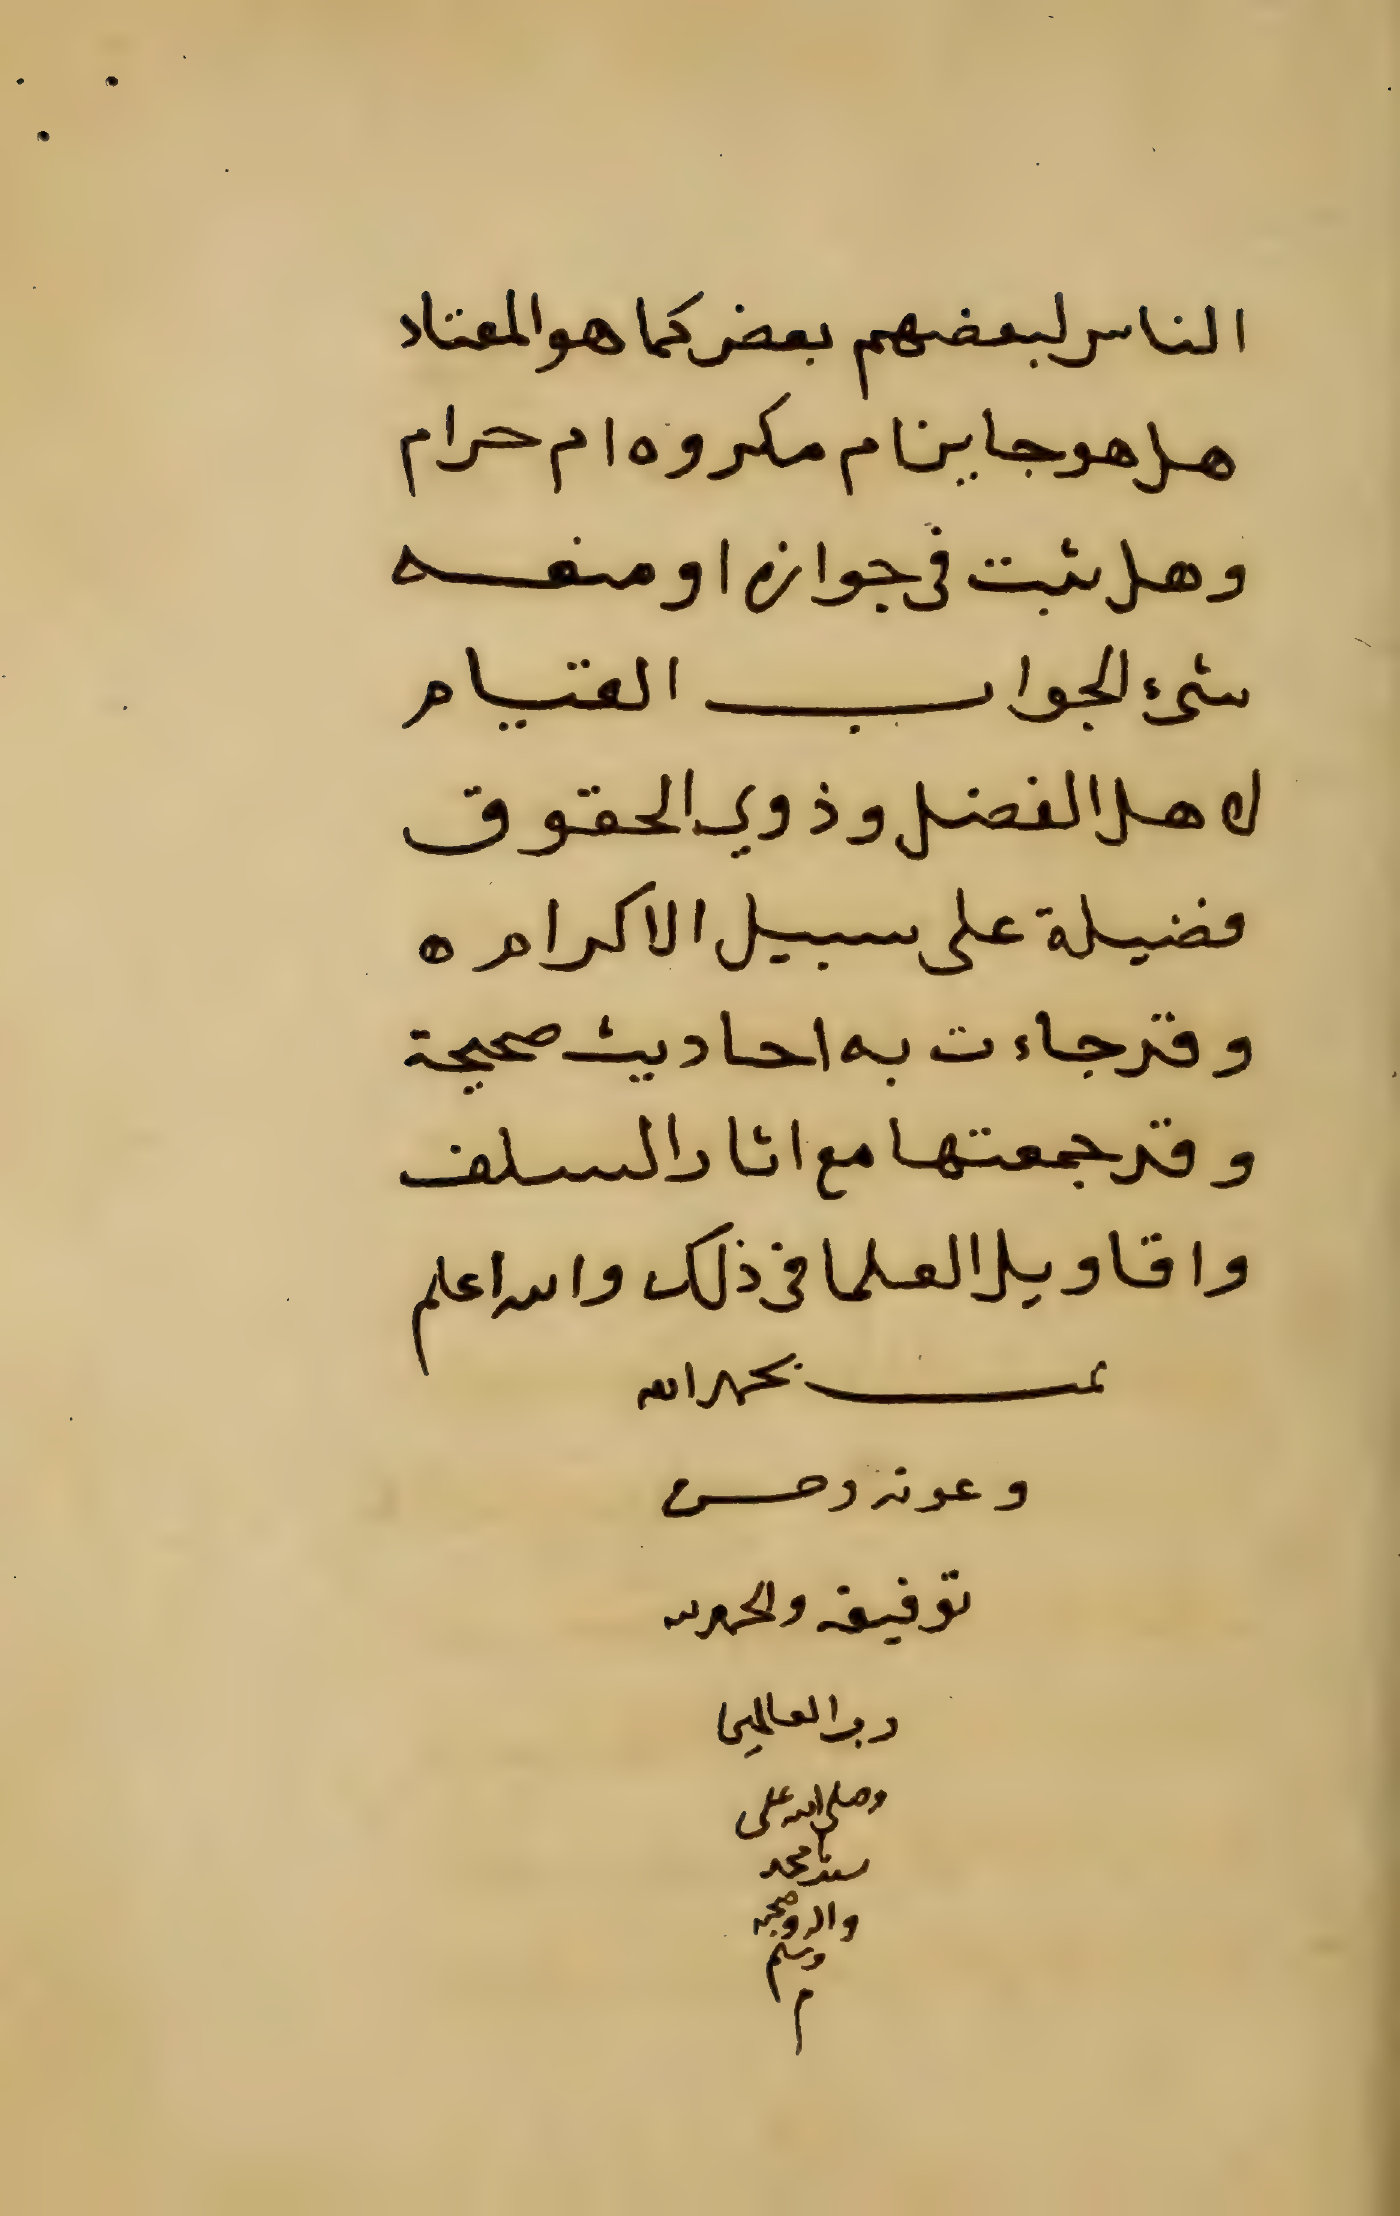 الناس لبعضهم بعض كما هو المعتاد
هل هو جايز ام مكروه ام حرام
وهل ثبت في جوازه او منعه
شيء الجواب القيام
لاهل الفضل وذوي الحقوق
فضيلة على سبيل الاكرام ه
وقد جاءت به احاديث صحيحة
وقد جمعتها مع اثار السلف
واقاويل العلما في ذلك والله اعلم
تمت بحمد الله
وعونه وحسن
توفيقه والحمد لله
رب العالمين
وصلى الله على
سيدنا محمد
واله وصحبه
وسلم
م